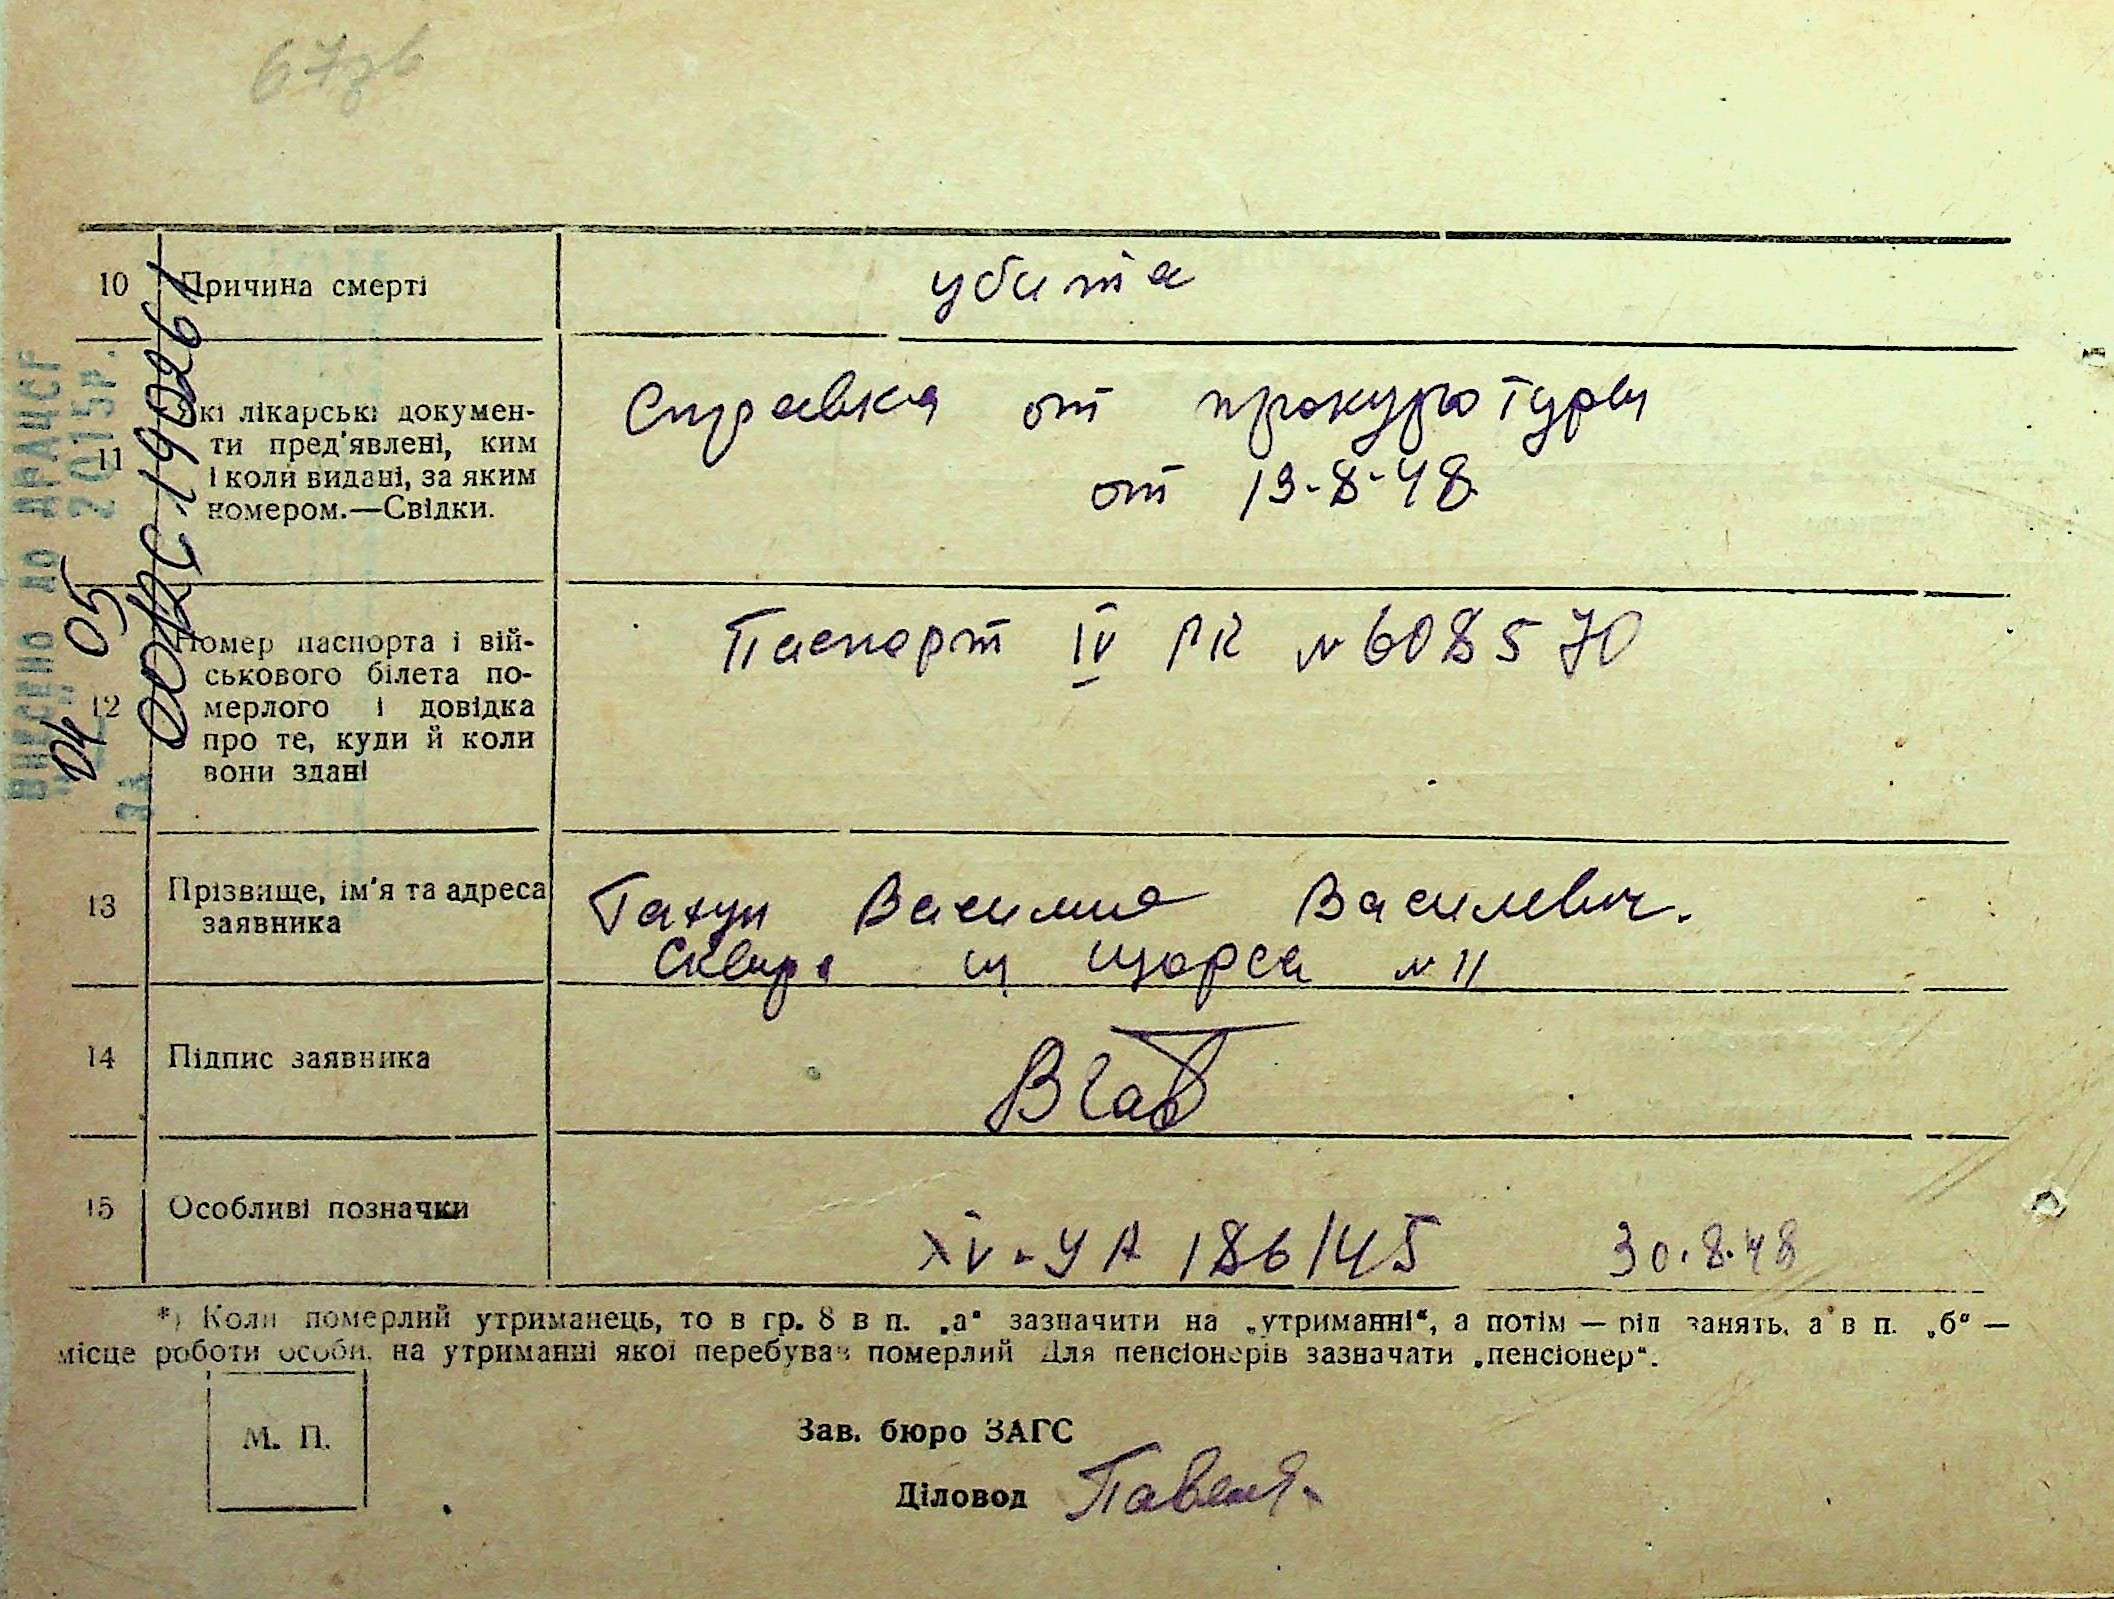 67зв
10 Причина смерті убита
11 Які лікарські докумен-
ти пред'явлені, ким
і коли видані, за яким
номером.—Свідки.
Справка от прокуротуры
от 13-8-48
12 Номер паспорта і вій-
ськового білета по-
мерлого і довідка
про те, куди й коли
вони здані
Паспорт IV РК № 608570
13 Прізвище, ім'я та адреса
заявника
Василевич.
Сквира Щорса № 11
14 Підпис заявника
15 Особливі позначки
XV-УА 186145 30.8.48
*) Коли померлий утриманець, то в гр. 8 в п. „а“ зазначити на „утриманні“, а потім — рід занять, а в п. „б“ —
місце роботи особи, на утриманні якої перебував померлий Для пенсіонерів зазначати „пенсіонер“.
М. П.
Зав. бюро ЗАГС
Діловод
ВНЕСЕНО ДО ДРАЦСГ
04 05 2015р.
за 00126.190261